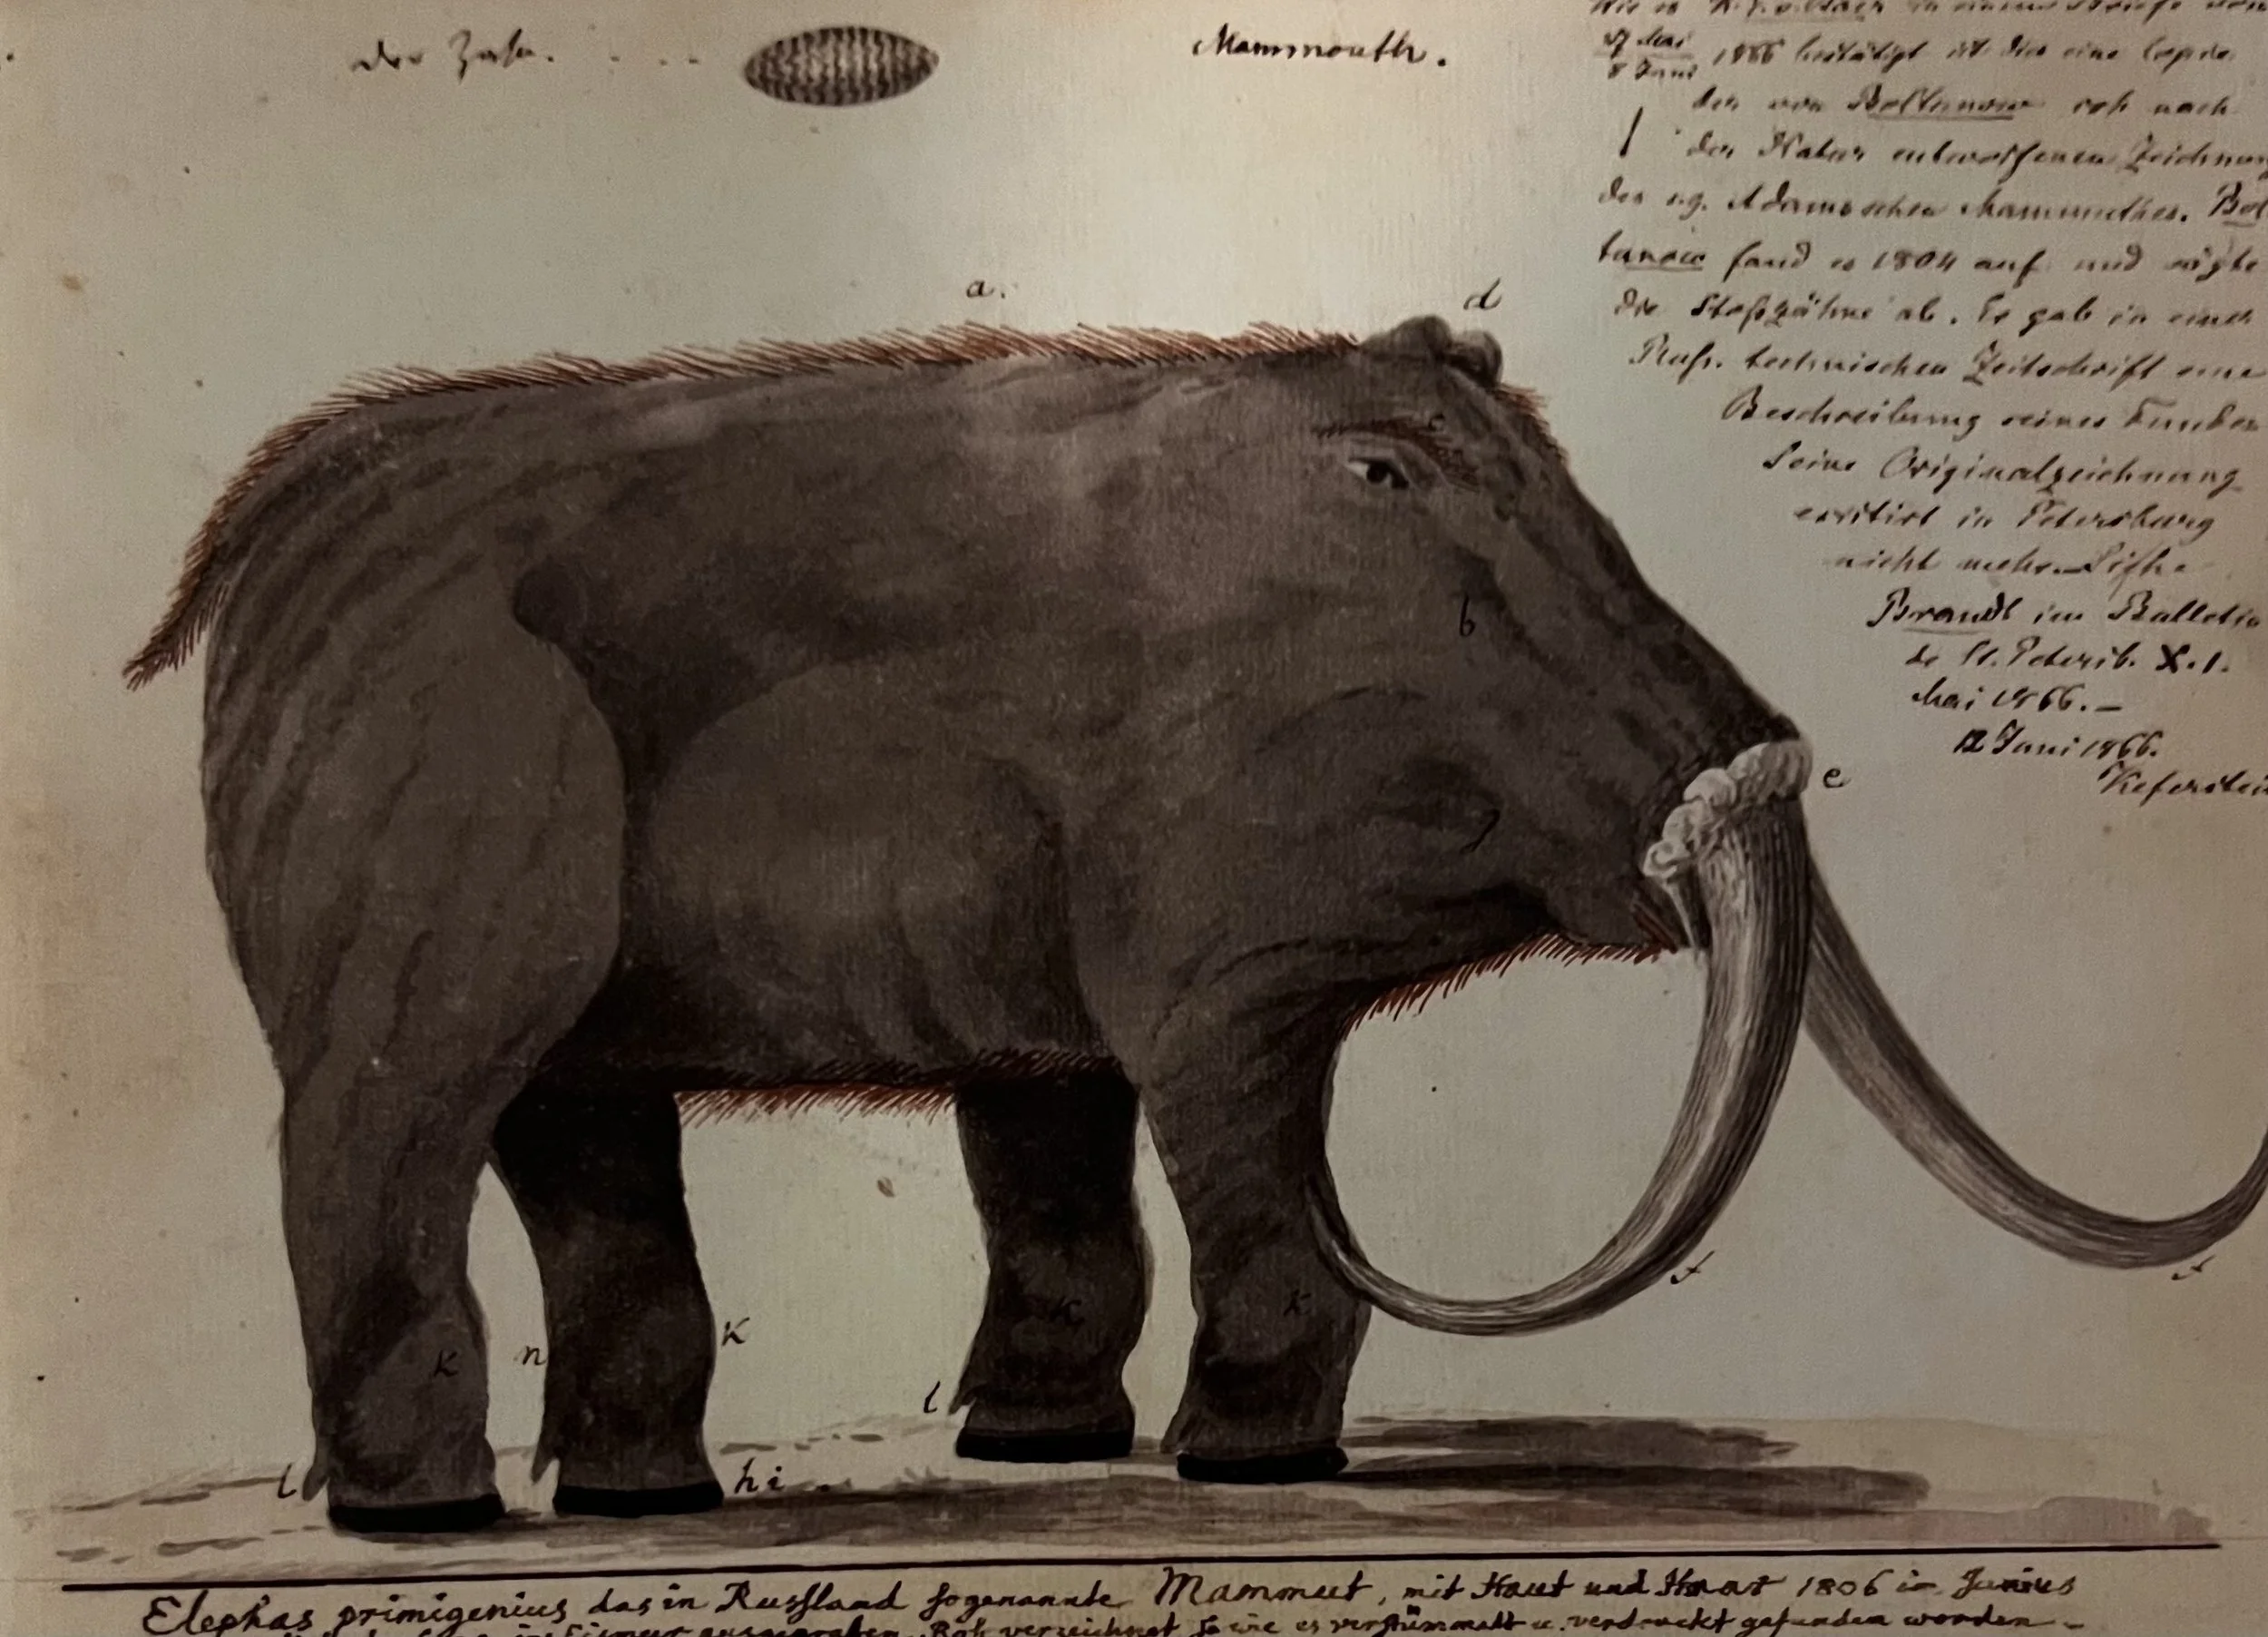 der Zahn. . . . .
Mammouth.
Wie es K. E. v. Baer in einem Briefe vom
27 Mai
8 Juni 1866 bestätigt ist dies eine Copie
der von Boltunow roh nach
der Natur entworfenen Zeichnung
des s.g. Adams'schen Mammuthes. Bol
tunow fand es 1804 auf und sägte
die Stoßzähne ab. Er gab in einer
Russ. technischen Zeitschrift eine
Beschreibung seines Fundes
Seine Originalzeichnung
existirt in Petersburg
nicht mehr. – Siehe
Brandt im Bulletin
de St. Petersb. X. 1.
Mai 1866. –
12 Juni 1866.
Keferstein
a.
d
c
b
e
f
f
K
n
K
K
K
l
l
h i
Elephas primigenius das in Russland sogenannte Mammut, mit Haut und Haar 1806 in Junius
im Eismeer ausgegraben. Roh verzeichnet so wie es verstümmelt u. verdreckt gefunden worden –